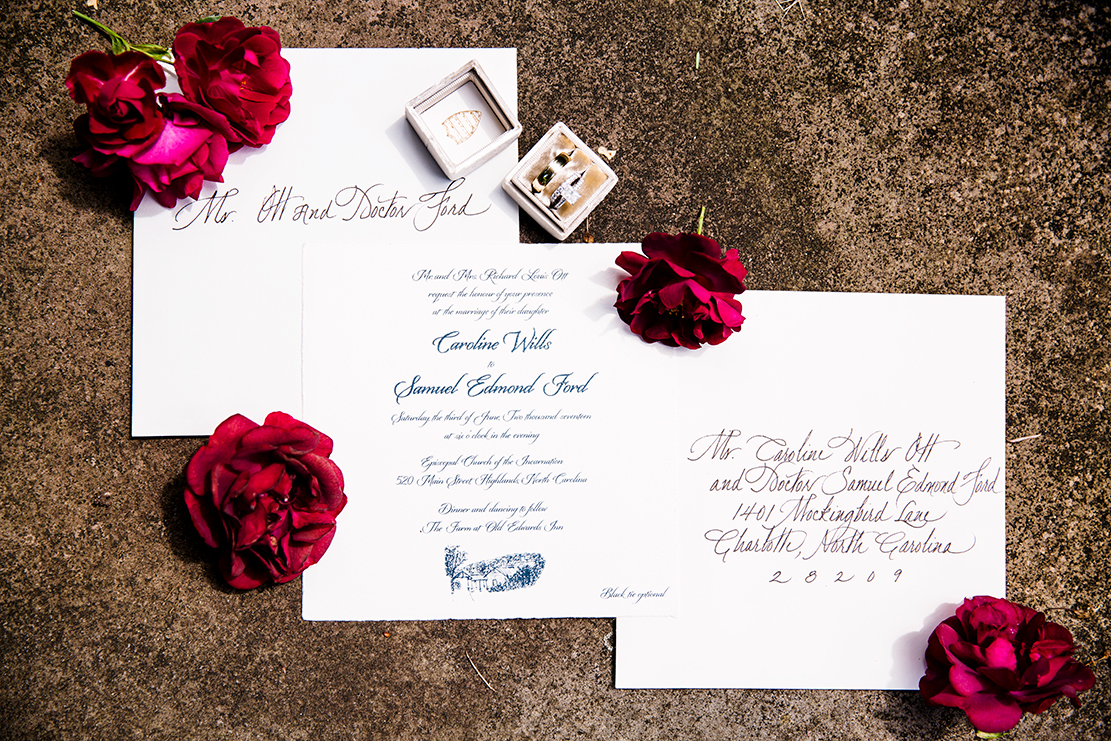 Ms. Ott and Doctor Ford
Mr. and Mrs. Richard Louis Ott
request the honour of your presence
at the marriage of their daughter
Caroline Wills
to
Samuel Edmond Ford
Saturday the third of June, Two thousand seventeen
at six o'clock in the evening
Episcopal Church of the Incarnation
520 Main Street Highlands, North Carolina
Dinner and dancing to follow
The Farm at Old Edwards Inn
Black tie optional
Ms. Caroline Wills Ott
and Doctor Samuel Edmond Ford
1401 Mockingbird Lane
Charlotte, North Carolina
28209